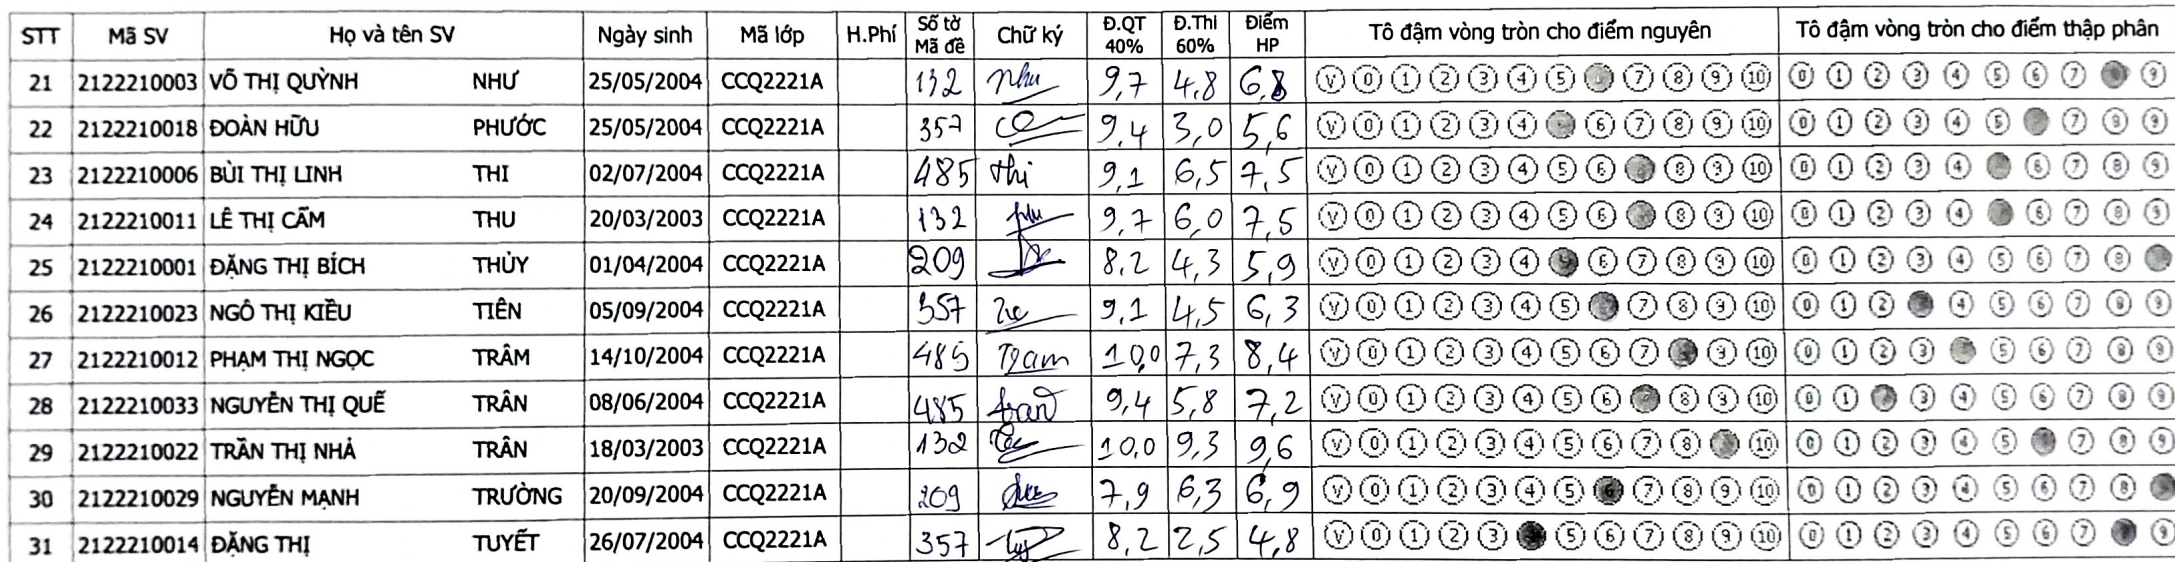 STT Mã SV Họ và tên SV Ngày sinh Mã lớp H.Phí Số tờ Mã đề Chữ ký Đ.QT 40% Đ.Thi 60% Điểm HP Tô đậm vòng tròn cho điểm nguyên Tô đậm vòng tròn cho điểm thập phân
21 2122210003 VÕ THỊ QUỲNH NHƯ 25/05/2004 CCQ2221A 132 Như 9,7 4,8 6,8 V 0 1 2 3 4 5 7 8 9 10 0 1 2 3 4 5 6 7 9
22 2122210018 ĐOÀN HỮU PHƯỚC 25/05/2004 CCQ2221A 357 9,4 3,0 5,6 V 0 1 2 3 4 6 7 8 9 10 0 1 2 3 4 5 7 8 9
23 2122210006 BÙI THỊ LINH THI 02/07/2004 CCQ2221A 485 thi 9,1 6,5 7,5 V 0 1 2 3 4 5 6 8 9 10 0 1 2 3 4 6 7 8 9
24 2122210011 LÊ THỊ CẨM THU 20/03/2003 CCQ2221A 132 9,7 6,0 7,5 V 0 1 2 3 4 5 6 8 9 10 0 1 2 3 4 6 7 8 9
25 2122210001 ĐẶNG THỊ BÍCH THỦY 01/04/2004 CCQ2221A 209 8,2 4,3 5,9 V 0 1 2 3 4 6 7 8 9 10 0 1 2 3 4 5 6 7 8
26 2122210023 NGÔ THỊ KIỀU TIÊN 05/09/2004 CCQ2221A 357 9,1 4,5 6,3 V 0 1 2 3 4 5 7 8 9 10 0 1 2 4 5 6 7 8 9
27 2122210012 PHẠM THỊ NGỌC TRÂM 14/10/2004 CCQ2221A 485 Tram 10,0 7,3 8,4 V 0 1 2 3 4 5 6 7 9 10 0 1 2 3 5 6 7 8 9
28 2122210033 NGUYỄN THỊ QUẾ TRÂN 08/06/2004 CCQ2221A 485 9,4 5,8 7,2 V 0 1 2 3 4 5 6 8 9 10 0 1 3 4 5 6 7 8 9
29 2122210022 TRẦN THỊ NHẢ TRÂN 18/03/2003 CCQ2221A 132 10,0 9,3 9,6 V 0 1 2 3 4 5 6 7 8 10 0 1 2 3 4 5 7 8 9
30 2122210029 NGUYỄN MẠNH TRƯỜNG 20/09/2004 CCQ2221A 209 7,9 6,3 6,9 V 0 1 2 3 4 5 6 7 8 9 10 0 1 2 3 4 5 6 7 8
31 2122210014 ĐẶNG THỊ TUYẾT 26/07/2004 CCQ2221A 357 8,2 2,5 4,8 V 0 1 2 3 5 6 7 8 9 10 0 1 2 3 4 5 6 7 9